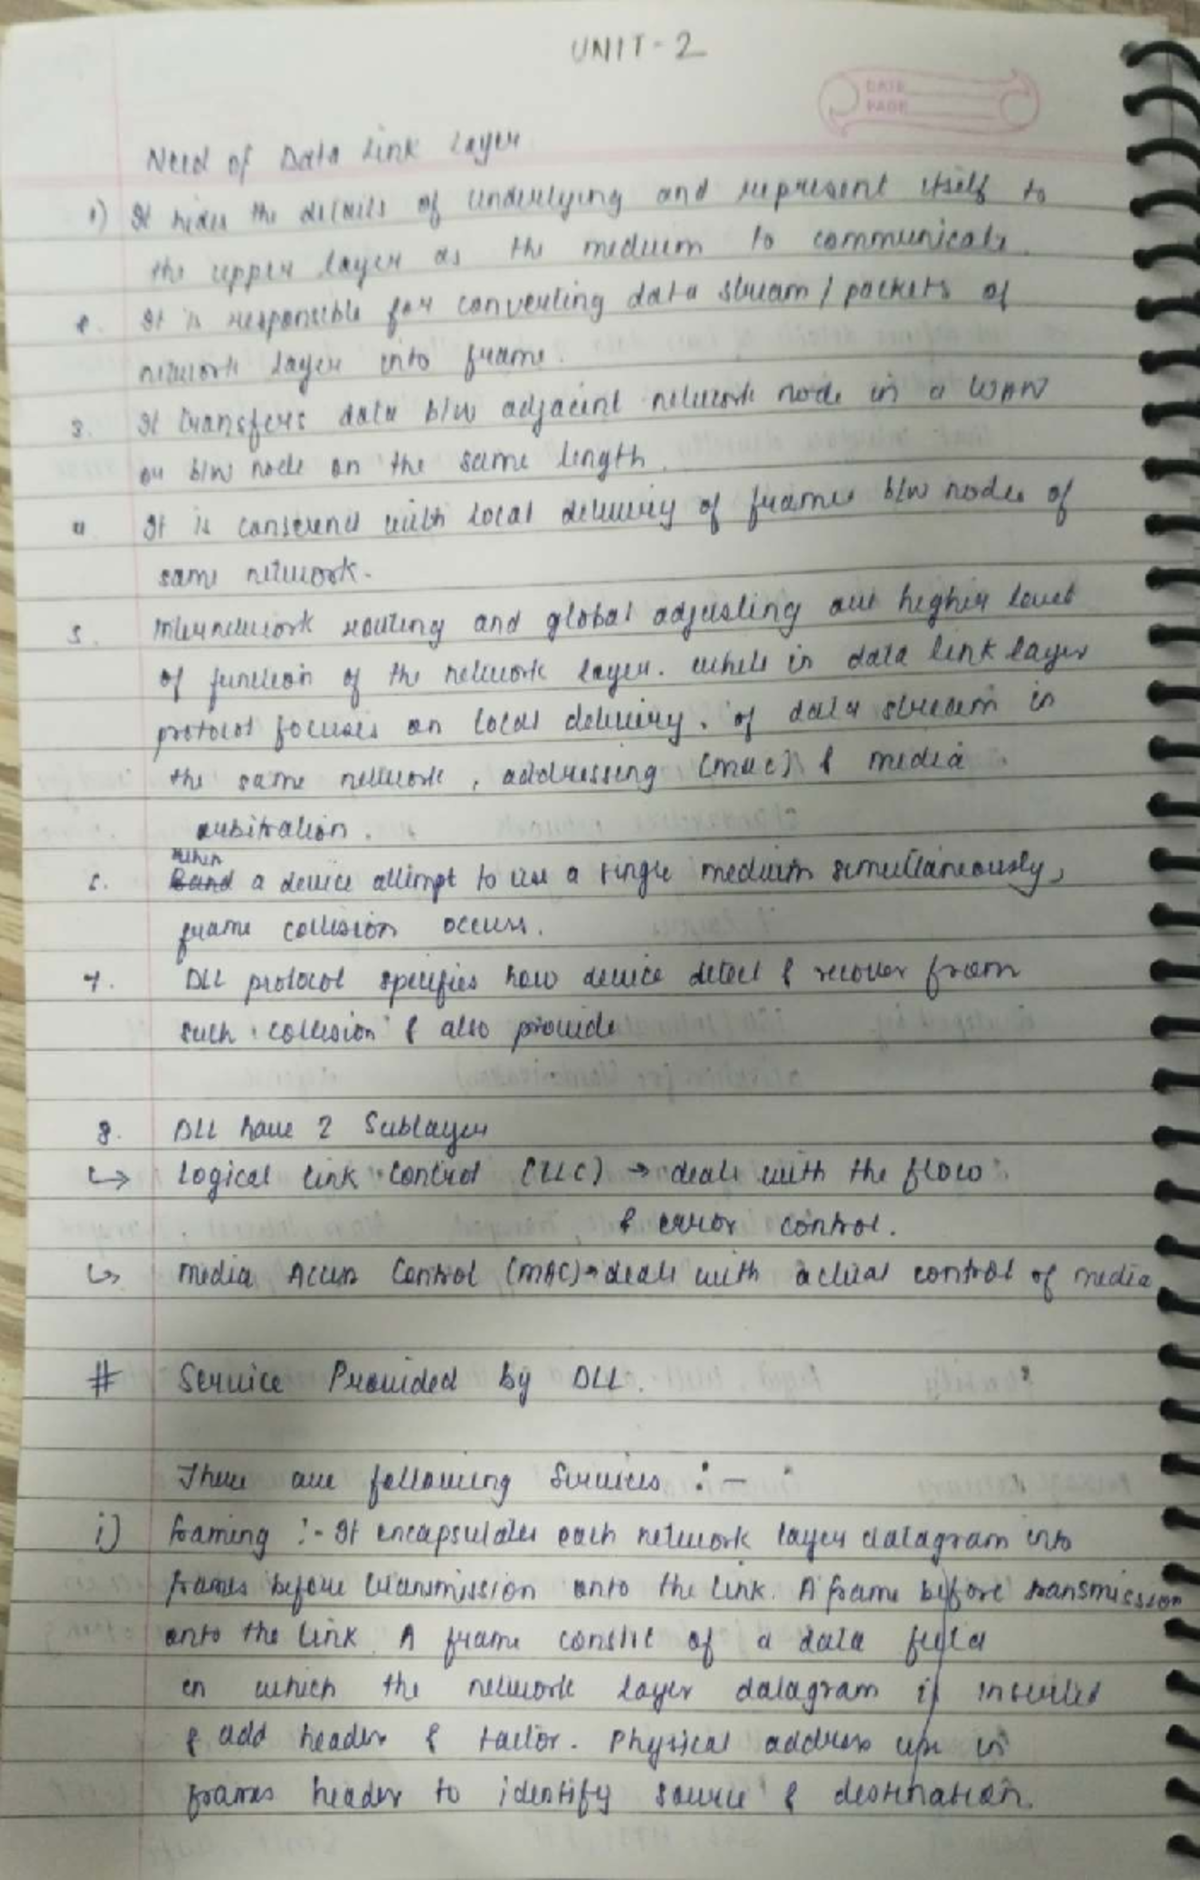 UNIT-2
DATE
PAGE
Need of Data Link Layer
1) It hides the details of underlying and represent itself to
the upper layer as the medium to communicate.
2. It is responsible for converting data stream / packets of
network layer into frame.
3. It transfers data b/w adjacent network node in a WAN
or b/w node on the same length.
4 It is conscrend with local delivery of frames b/w nodes of
same network.
5. Internetwork routing and global adjusting are higher level
of function of the network layer. while in data link layer
protocol focuses on local delivery. of data stream in
the same network, addressing (MAC) & media
arbitration.
when
6. Band a device attempt to use a single medium simultaneously,
frame collision occurs.
7. DLL protocol specifies how device detect & recover from
such collision & also provide
8. DLL have 2 Sublayer
↳ Logical link control (LLC) → deals with the flow
& error control.
↳ Media Access Control (MAC) → deals with actual control of media
# Service Provided by DLL.
There are following Services :-
i) Foaming :- It encapsulates each network layer datagram into
frames before transmission onto the link. A frame before transmission
onto the link. A frame consist of a data field
in which the network layer datagram is inserted
& add header & tailor. Physical address in
frames header to identify source & destination.